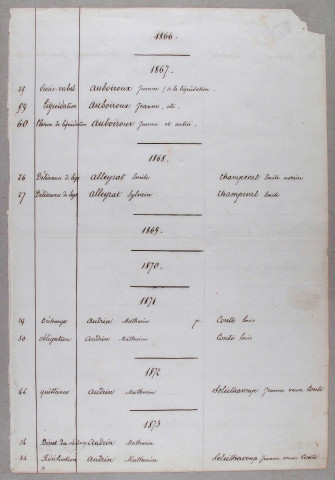 1866.
1867.
29 Procès-verbal Auboiroux Jeanne (de la liquidation.
59 Liquidation Auboiroux Jeanne, etc.
60 Clôture de liquidation Auboiroux Jeanne et autres.
1868.
26 Délivrance de legs Alleyrat Emile Champeval Emile
27 Délivrance de legs Alleyrat Sylvain Champeval Emile
1869.
1870.
1871
29 Décharge Audrin Mathurin p. Conte Louis
30 Obligation Audrin Mathurin Conte Louis
1872
44 quittance Audrin Mathurin Soleilhavoup Jeanne veuve Conte
1873
14 Dépot du Audrin Mathurin
24 Résiliation Audrin Mathurin Soleilhavoup Jeanne veuve Conte